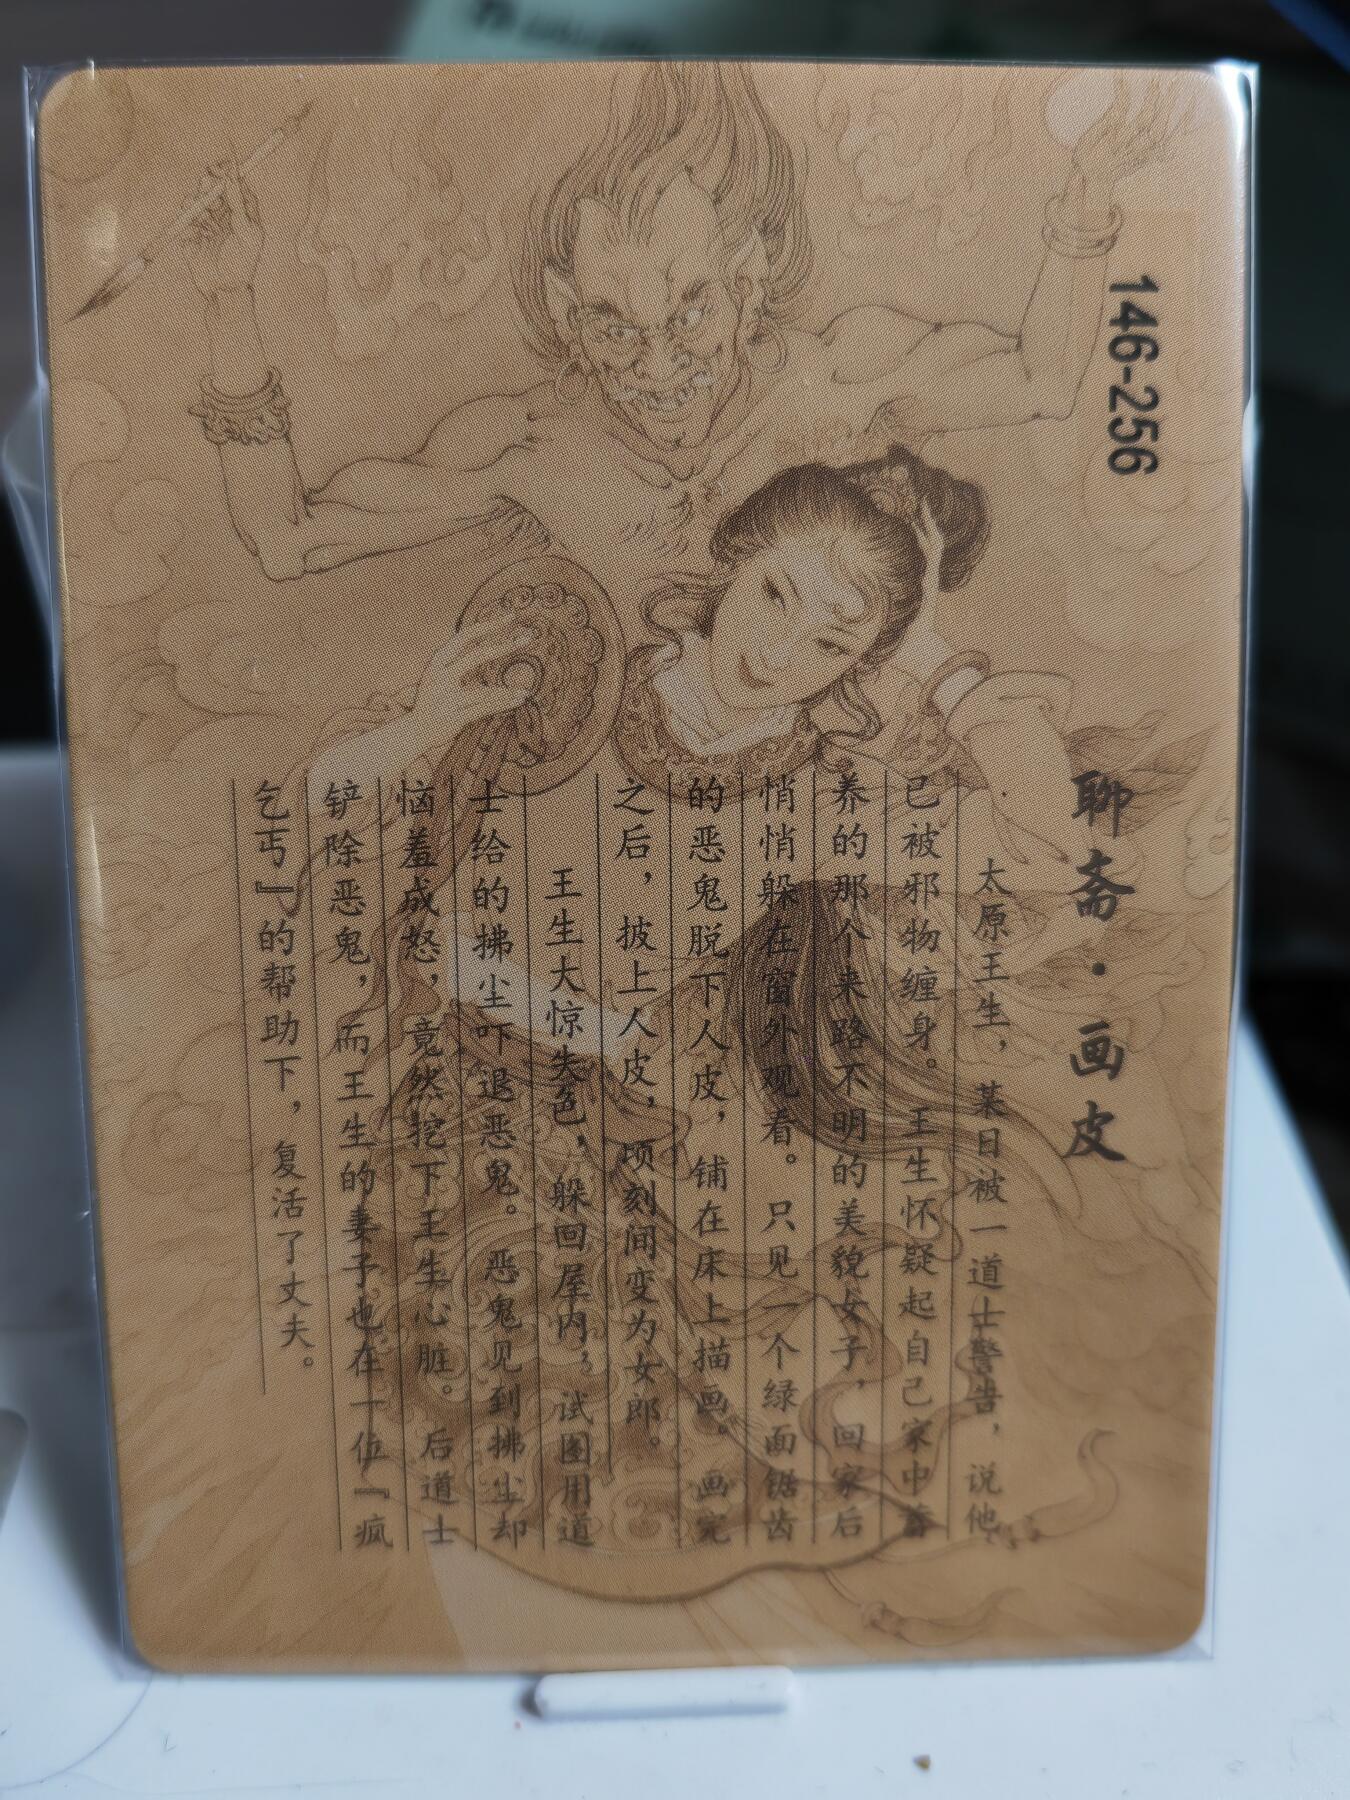 146-256
聊斋·画皮
太原王生，某日被一道士警告，说他
已被邪物缠身。王生怀疑起自己家中蓄
养的那个来路不明的美貌女子，回家后
悄悄躲在窗外观看。只见一个绿面锯齿
的恶鬼脱下人皮，铺在床上描画。画完
之后，披上人皮，顷刻间变为女郎。
王生大惊失色，躲回屋内，试图用道
士给的拂尘吓退恶鬼。恶鬼见到拂尘却
恼羞成怒，竟然挖下王生心脏。后道士
铲除恶鬼，而王生的妻子也在一位『疯
乞丐』的帮助下，复活了丈夫。